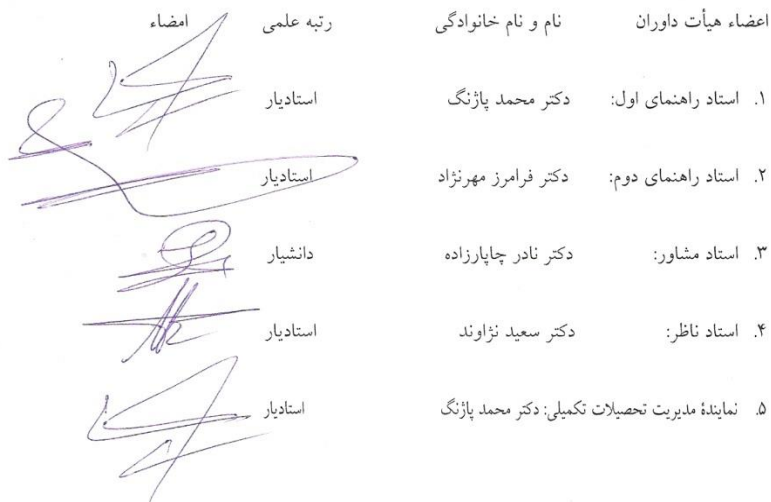 اعضاء هیأت داوران نام و نام خانوادگی رتبه علمی امضاء
۱. استاد راهنمای اول: دکتر محمد پاژنگ استادیار
۲. استاد راهنمای دوم: دکتر فرامرز مهرنژاد استادیار
۳. استاد مشاور: دکتر نادر چاپارزاده دانشیار
۴. استاد ناظر: دکتر سعید نژاوند استادیار
۵. نمایندهٔ مدیریت تحصیلات تکمیلی: دکتر محمد پاژنگ استادیار